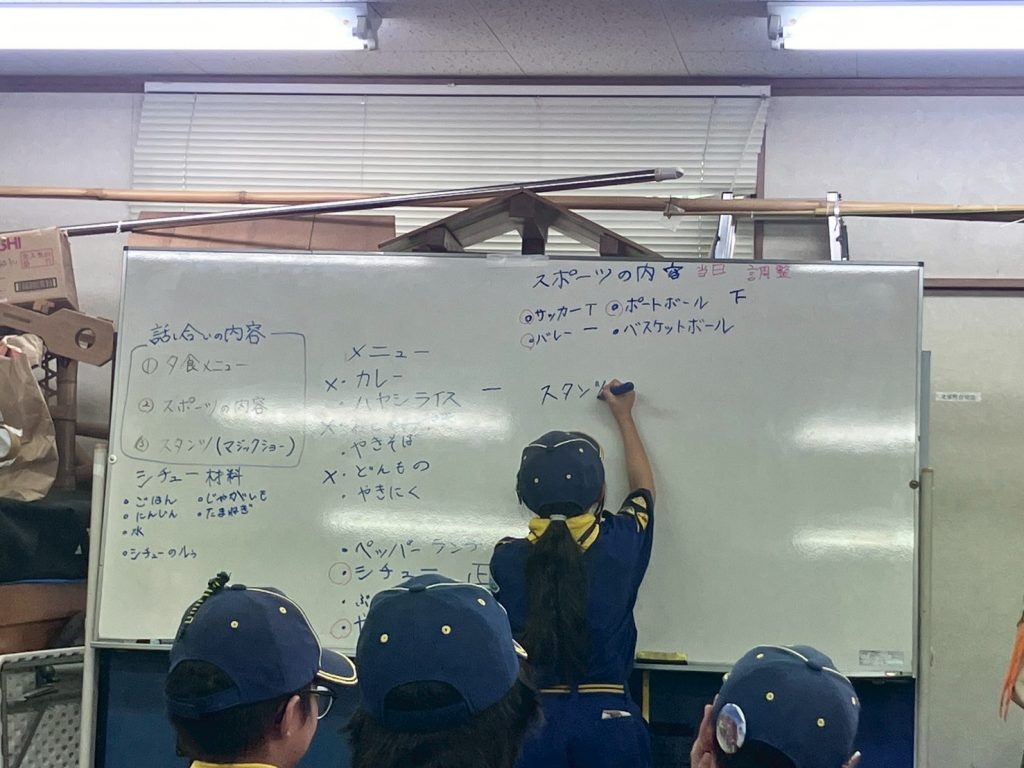 スポーツの内容 当日 調整
サッカー T ポートボール 下
バレー 一 ・バスケットボール
話し合いの内容
① 夕食メニュー
② スポーツの内容
③ スタンツ(マジックショー)
シチュー 材料
・ごはん ・じゃがいも
・にんじん ・たまねぎ
・水
・シチューのルゥ
メニュー
x・カレー
・ハヤシライス 一
・やきそば
x・どんもの
・やきにく
・ペッパーランチ
・シチュー 正
スタンツ